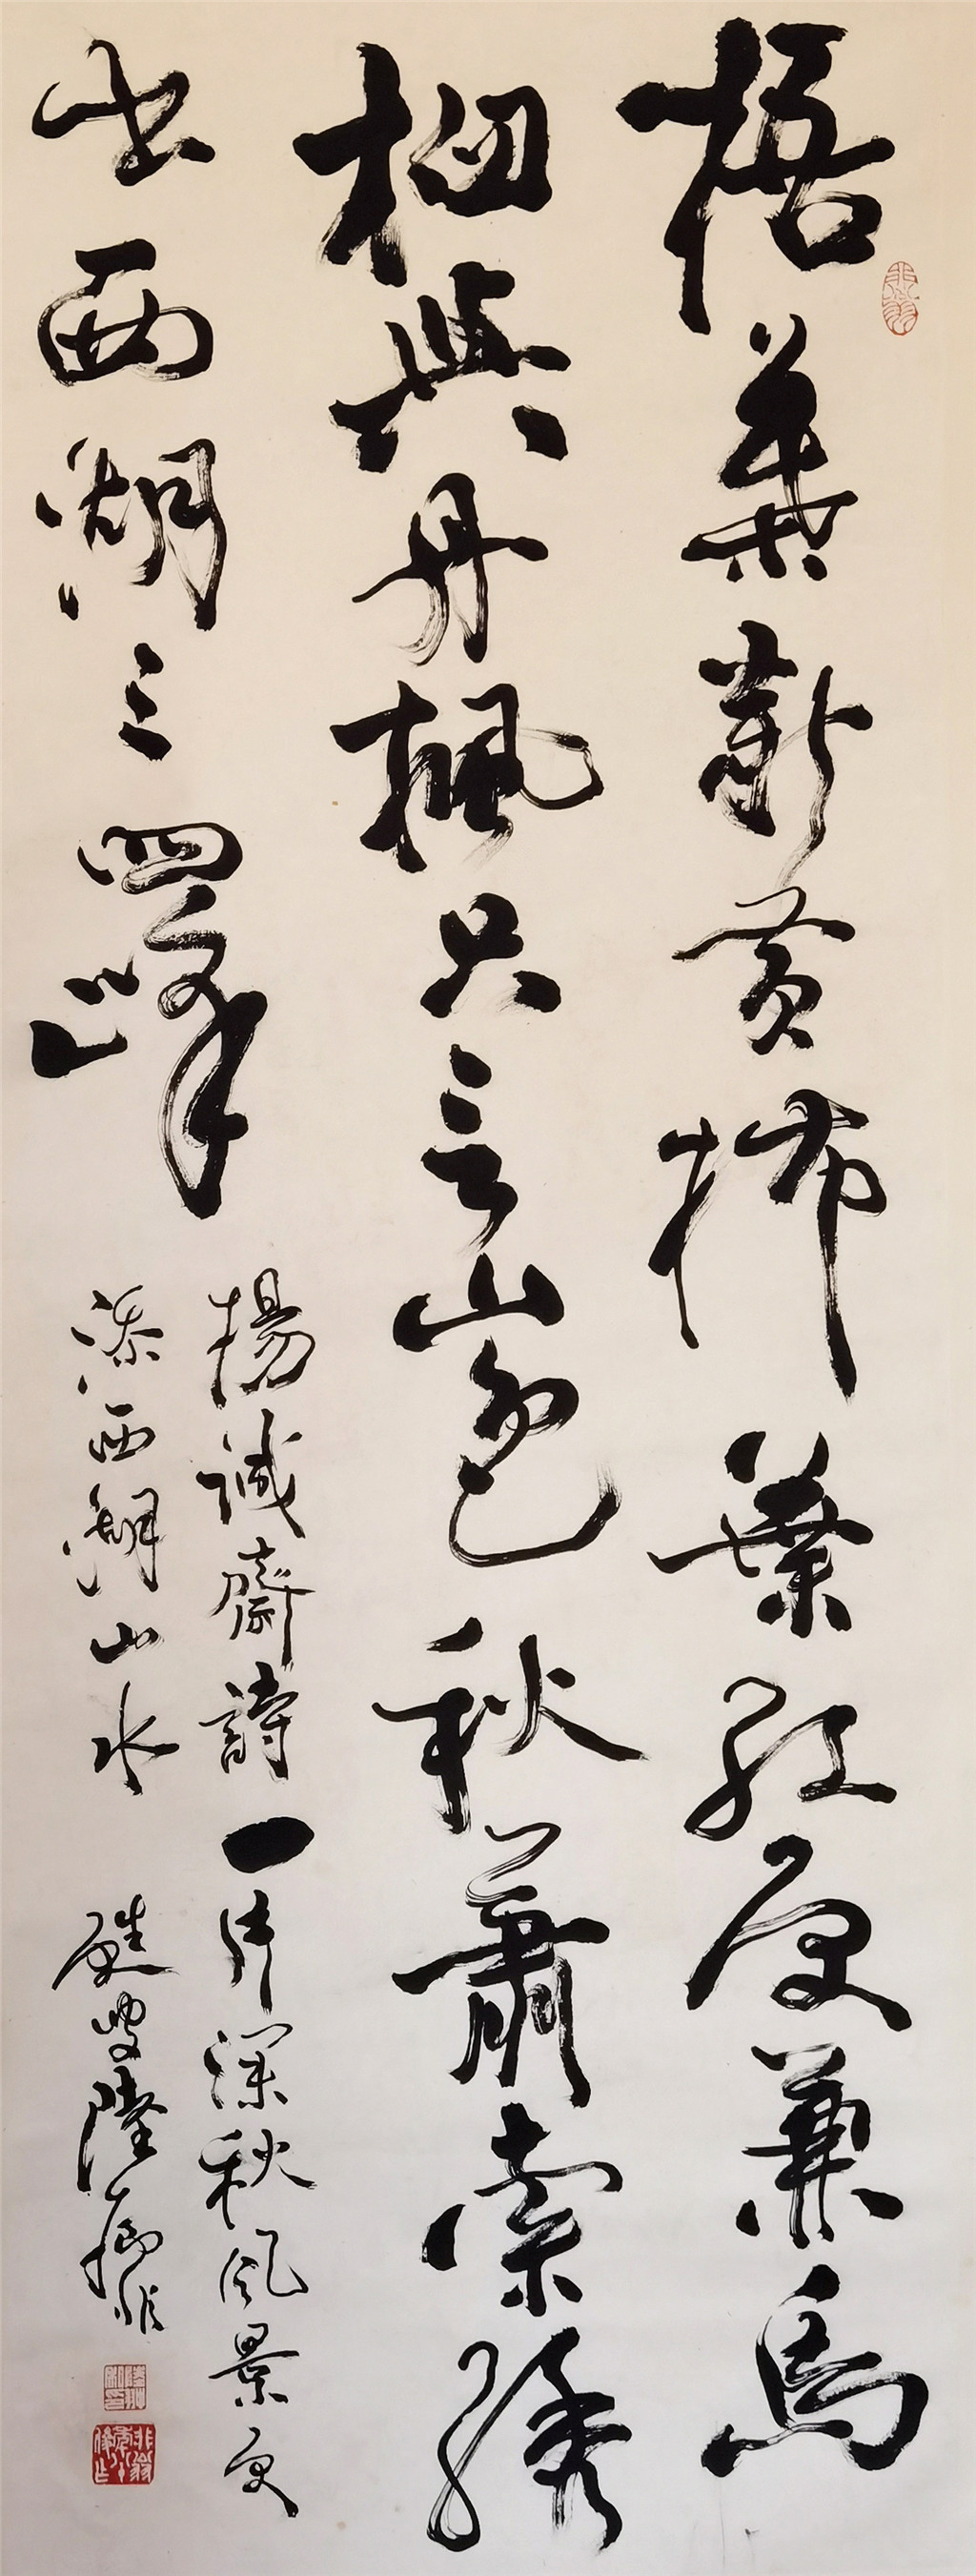 梧葉新黄柿葉紅更兼烏
桕與丹楓只言山色秋蕭索繡
出西湖三四峰
楊誠齋詩一片深秋風景更
添西湖山水 陸儼少